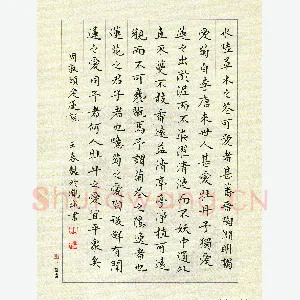 水陸草木之花可愛者甚蕃晉陶淵明獨
愛菊自李唐來世人甚愛牡丹予獨愛
蓮之出淤泥而不染濯清漣而不妖中通外
直不蔓不枝香遠益清亭亭淨植可遠
觀而不可褻翫焉予謂菊花之隱逸者也
蓮花之君子者也噫菊之愛陶後鮮有聞
蓮之愛同予者何人牡丹之愛宜乎衆矣
周敦頤愛蓮說